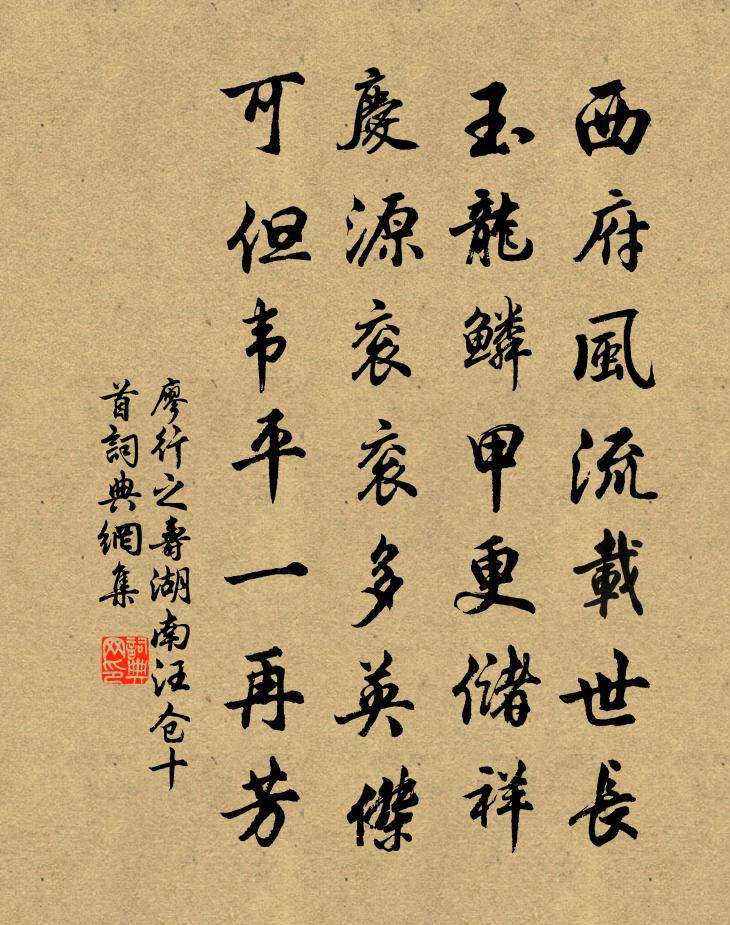 西府風流載世長
玉龍鱗甲更儲祥
慶源衮衮多英傑
可但韦平一再芳
廖行之壽湖南汪仓十
首詞典網集
詞典网印